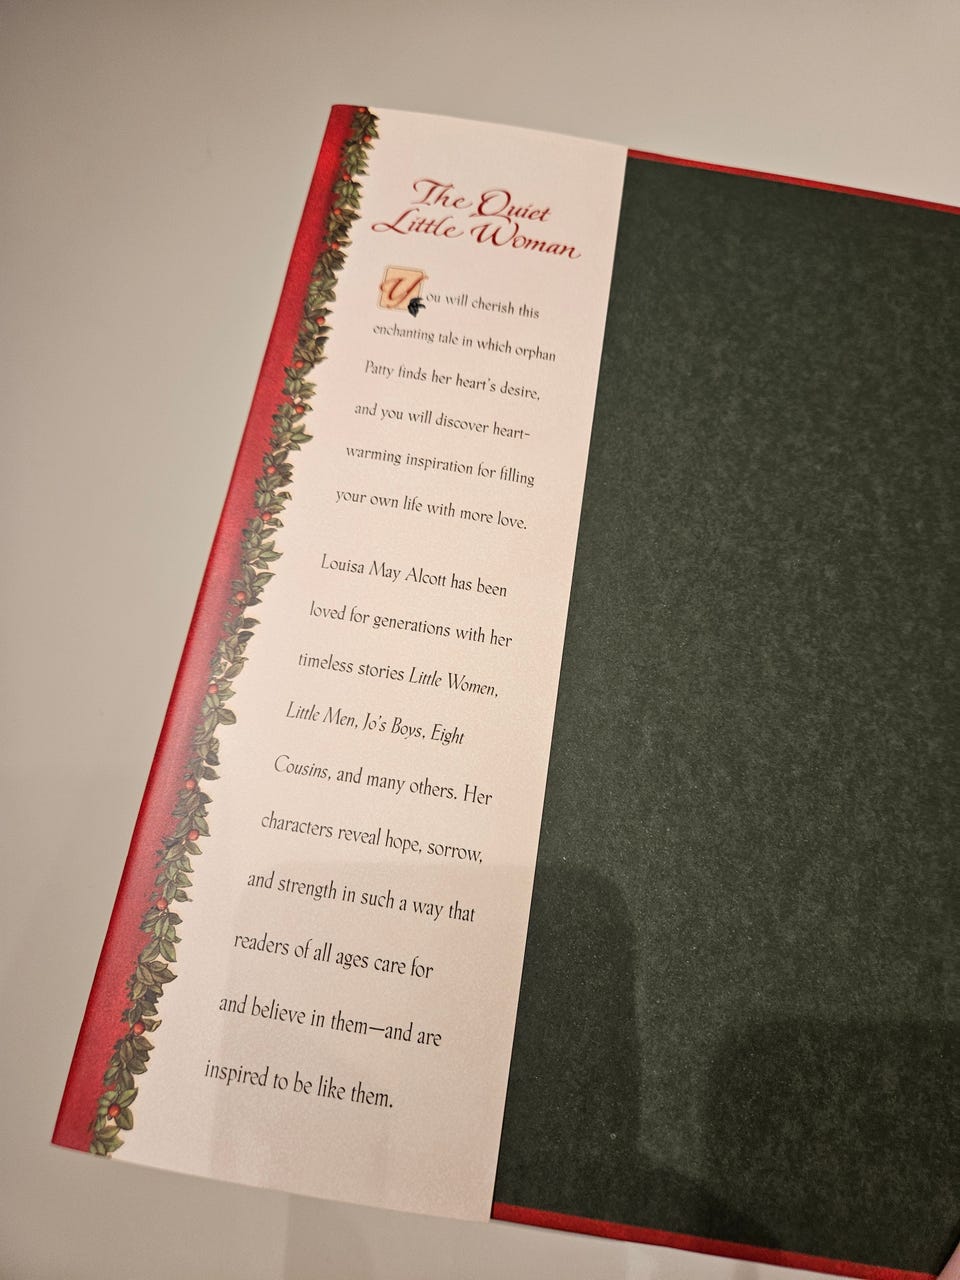 The Quiet
Little Woman
You will cherish this
enchanting tale in which orphan
Patty finds her heart's desire,
and you will discover heart-
warming inspiration for filling
your own life with more love.
Louisa May Alcott has been
loved for generations with her
timeless stories Little Women,
Little Men, Jo's Boys, Eight
Cousins, and many others. Her
characters reveal hope, sorrow,
and strength in such a way that
readers of all ages care for
and believe in them—and are
inspired to be like them.